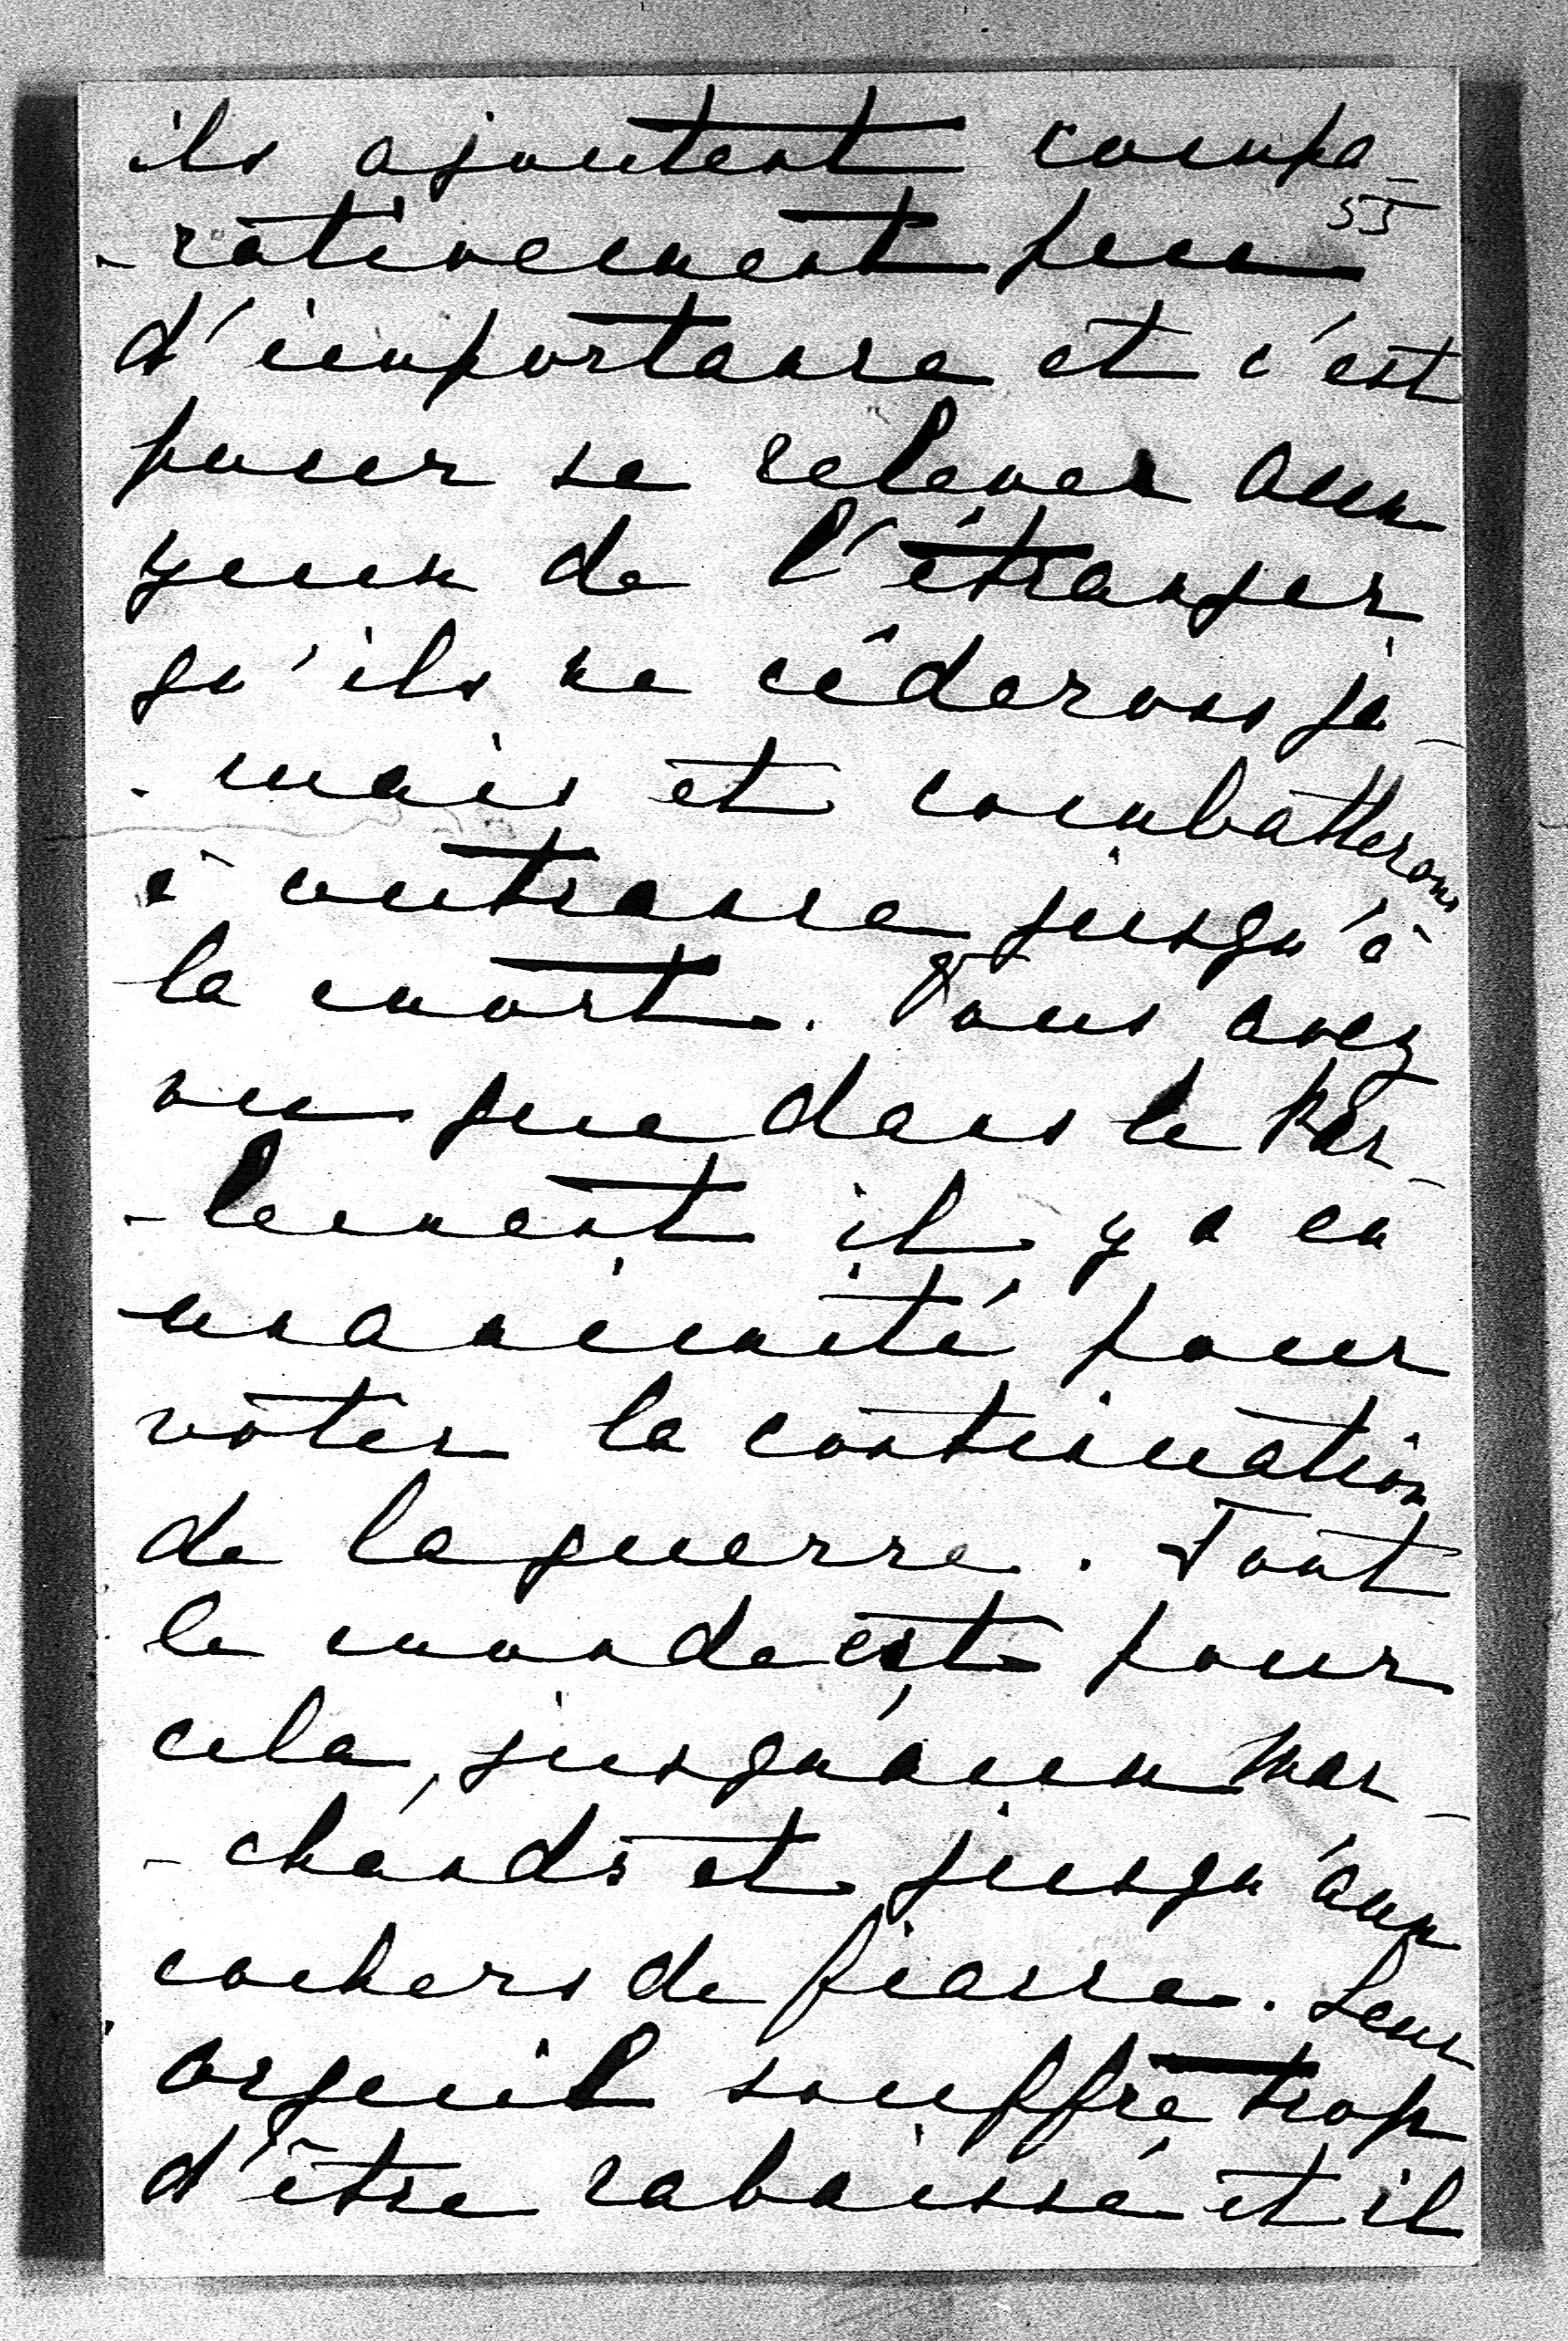 ils ajoutent compa-
55
-rativement peu
d'importance et c'est
pour se relever aux
yeux de l'étranger
qu'ils ne céderons ja-
-mais et combatterons
à outrance jusqu'à
la mort. Vous avez
vu que dans le Par-
-lement il y a eu
unanimité pour
voter la continuation
de la guerre. Tout
le monde est pour
cela, jusqu'aux mar-
-chands et jusqu'aux
cochers de fiacre. Leur
orgueil souffre trop
d'être rabaissé et il